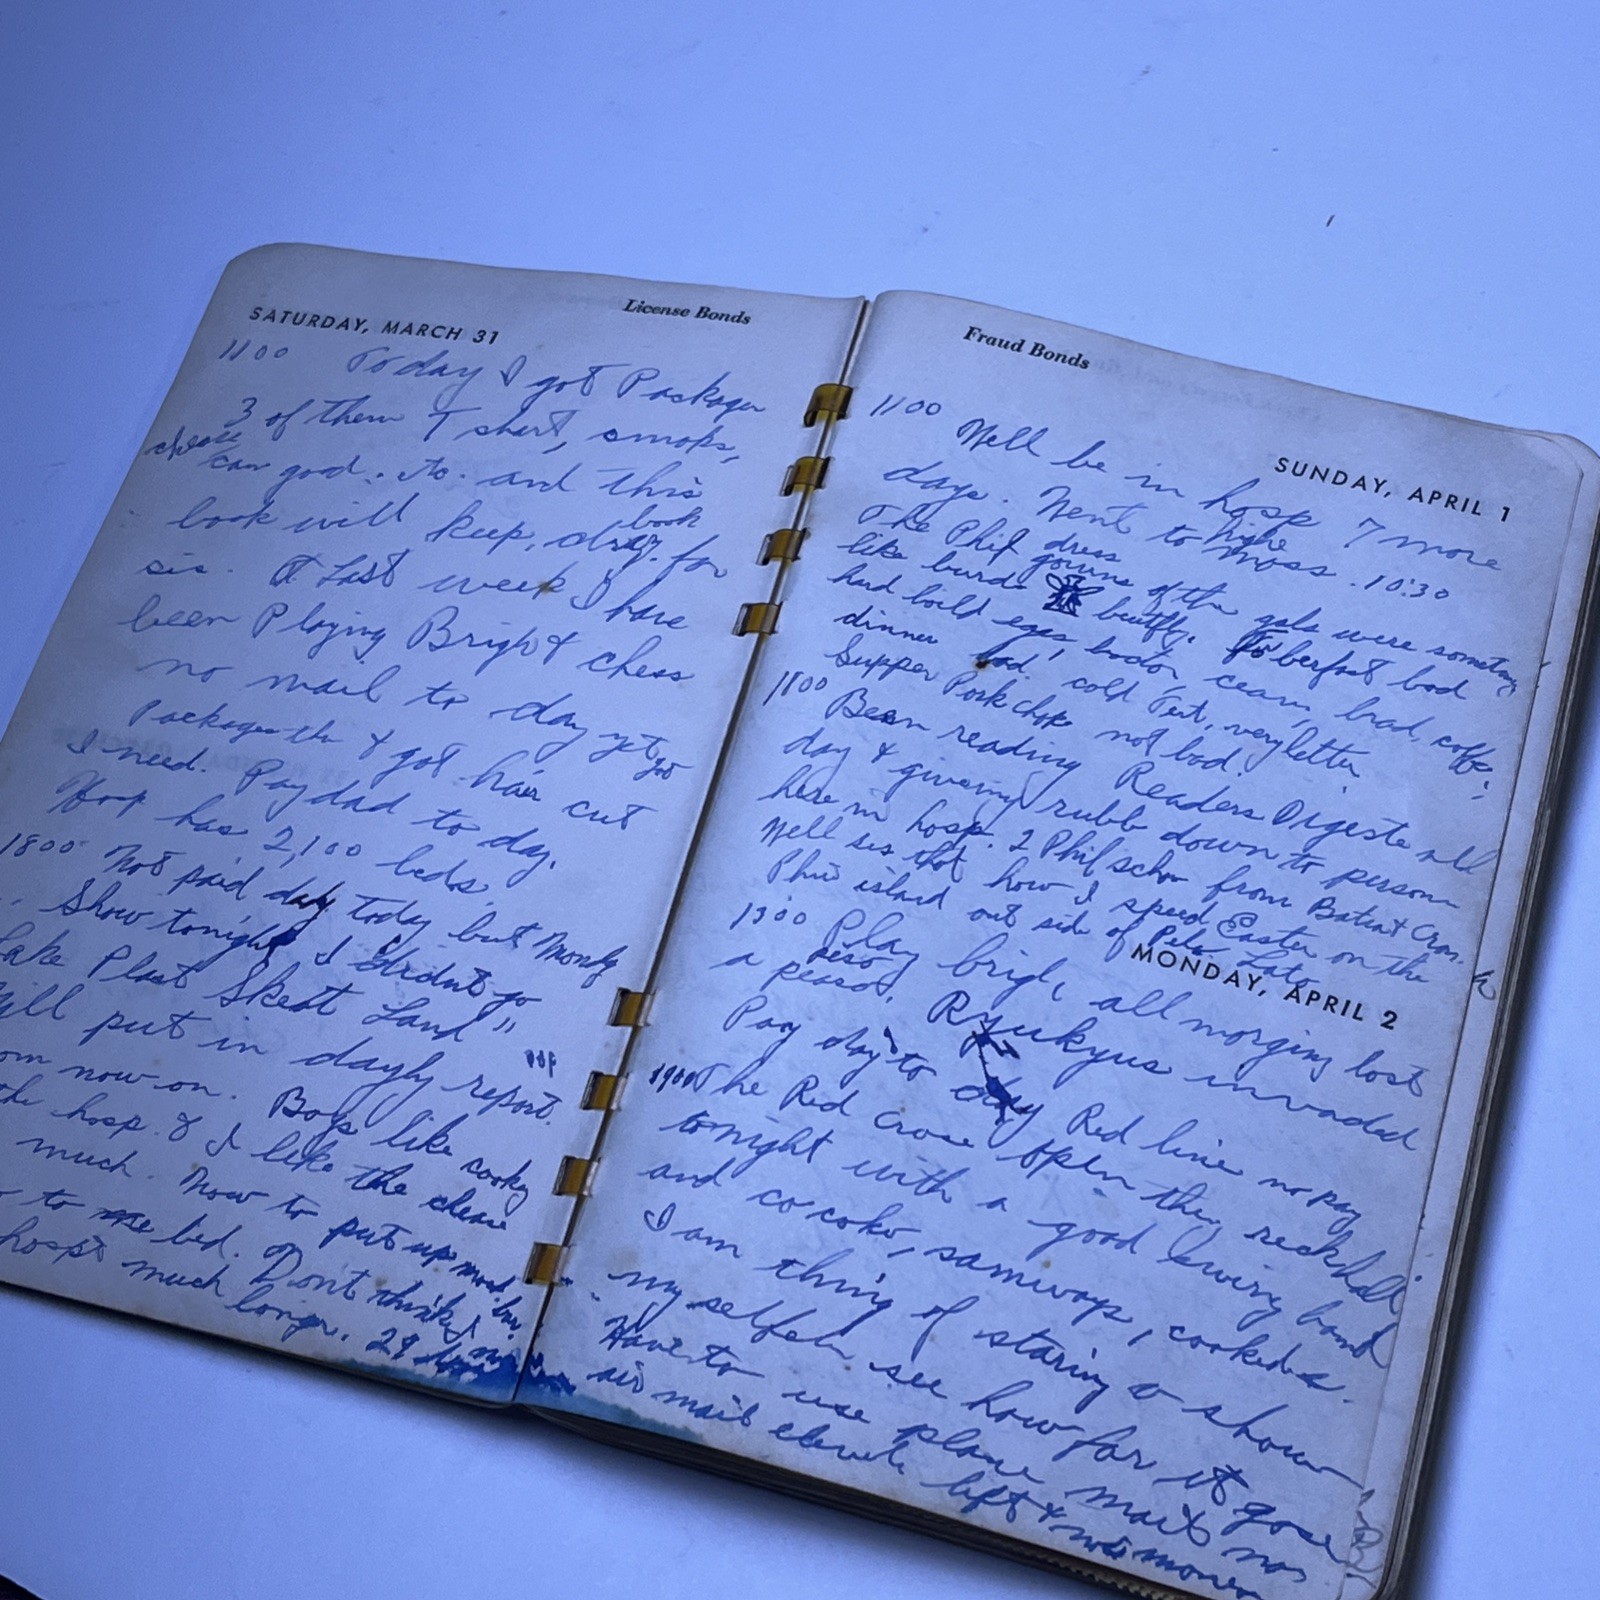 License Bonds
SATURDAY, MARCH 31
1100 Today I got Packages
3 of them T shert, smoks,
cheese can good. . and this
book will keep, book for
sis. At Last week I have
been Playing Brigh & chess
no mail to day yet
Packages & got hair cut
I need. Pay dad to day.
Hosp has 2,100 beds.
1800 Not paid day today but Mondy
Show tonight I didnt go
Lake Plast Skeat Land"
Will put in dayly report.
om now on. Boys like cooky
the hosp. & I like the chease
much. Now to put up
to bed. Don't think I
hospt much longer. 29
Fraud Bonds
SUNDAY, APRIL 1
1100 Well be in hosp 7 more
days. Went to high moss. 10:30
The Phil dress gowns of the gals were something
like burds beutfly. berfast bad
hard boild eges, cream, brad, coffe
dinner bad, cold , very letter
Supper Pork chop not bad.
1800 Been reading Readers Digeste all
day & giveing rubb down to person
here in hosp. 2 Phil from
Well sis that how I speed Easter on the
Phil island out side of
MONDAY, APRIL 2
1300 Play brigh all morging lost
a peso. Ryukyus invaded
Pay day to day Red line no pay
1900 The Red Cross open they reckhall
tonight with a good band
and co coko, samwogs, cookeds.
I am thing of staring a show
my selfeh see how far it gose
Have to use plane mail no
air mail left & no money